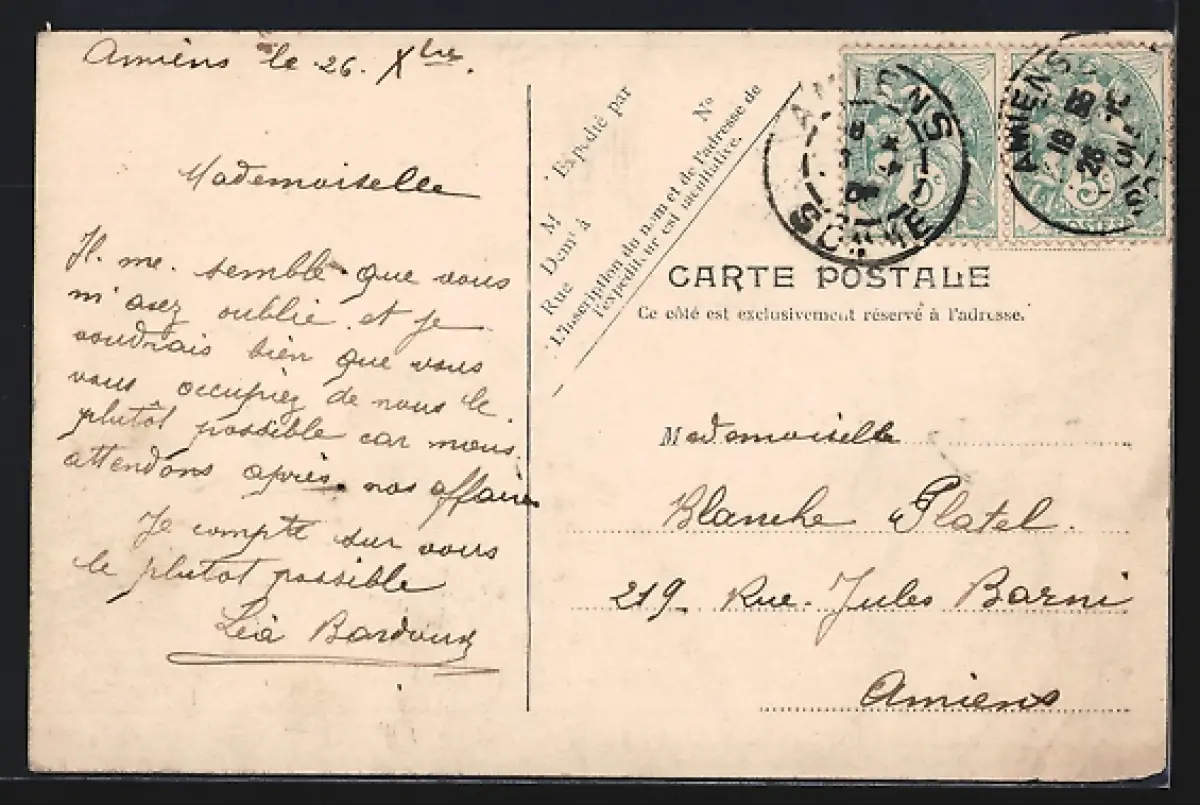 Amiens le 26. Xbre.
Mademoiselle
Il. me. semble. que vous
m'avez oublié. et je
voudrais bien que vous
vous occupiez de nous le.
plutôt possible car nous
attendons après. nos affaires
Je compte sur vous
le plutot possible
Léa Bardoux
Expédié par
M
Demt à
Rue
No
L'inscription du nom et de l'adresse de
l'expéditeur est facultative.
AMIENS
SOMME
5c
AMIENS
18 35
26
5c
POSTES
CARTE POSTALE
Ce côté est exclusivement réservé à l'adresse.
Mademoiselle
Blanche Platel.
219 Rue. Jules Barni
Amiens